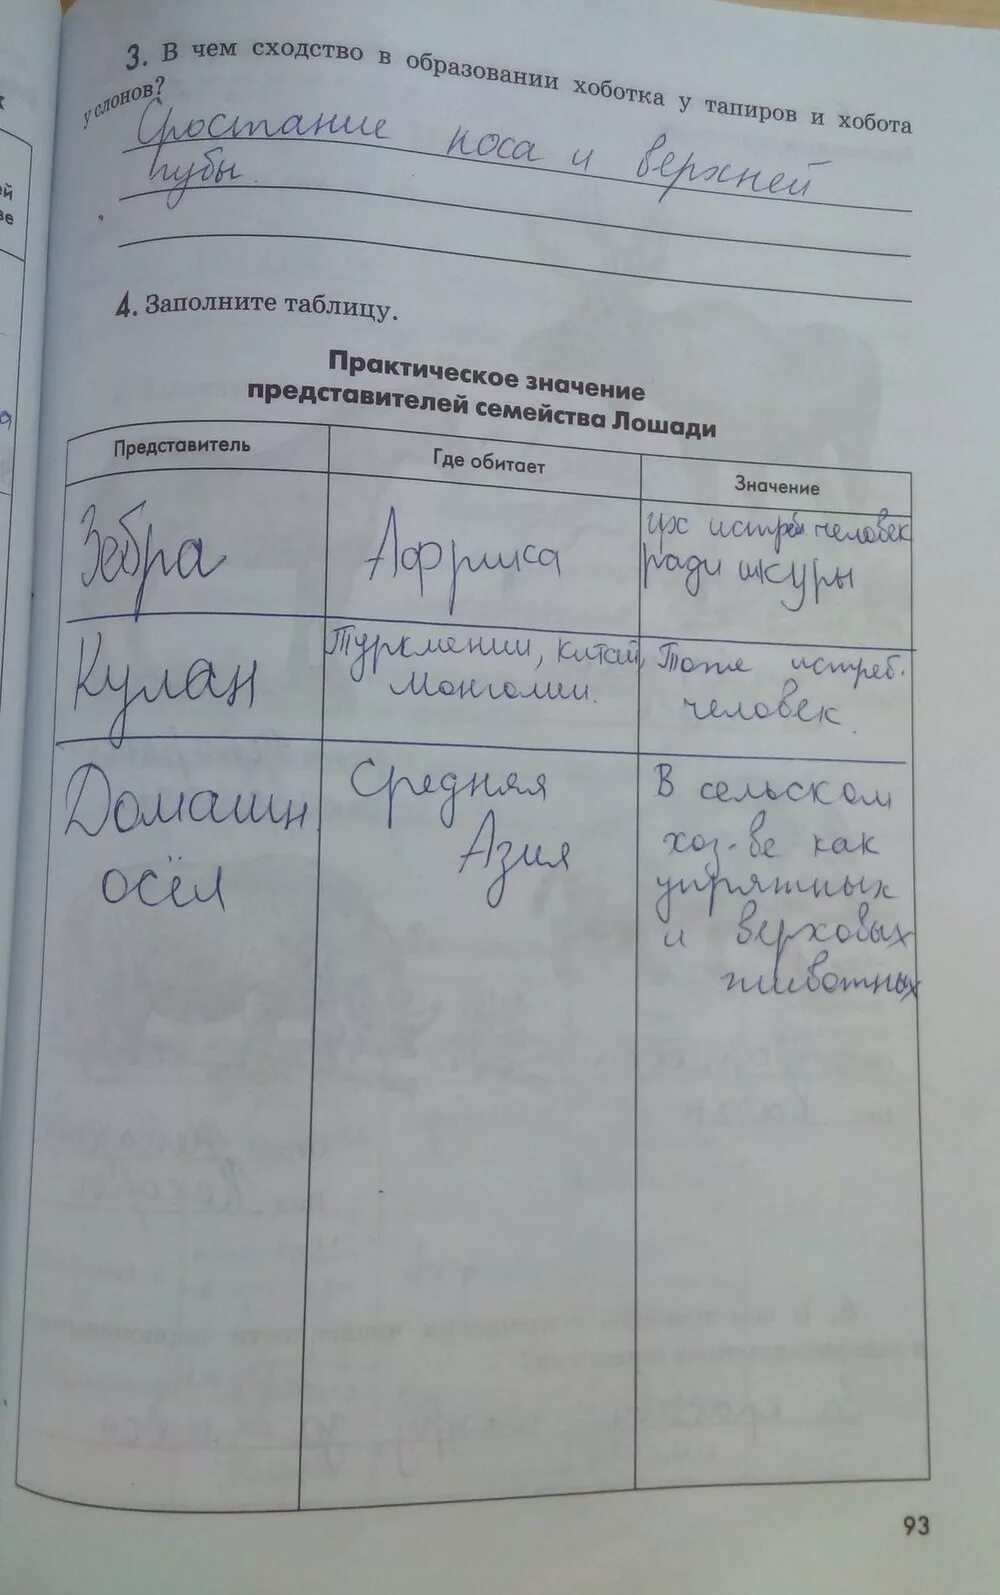 3. В чем сходство в образовании хоботка у тапиров и хобота
у слонов?
Сростание носа и верхней
губы.
4. Заполните таблицу.
Практическое значение
представителей семейства Лошади
Представитель
Где обитает
Значение
Зебра
Африка
их истреб человек
ради шкуры
Кулан
Туркмении, Китай,
Монголии.
Тоже истреб.
человек.
Домашн
осёл
Средняя
Азия
В сельском
хоз-ве как
упряжных
и верховых
животных
93